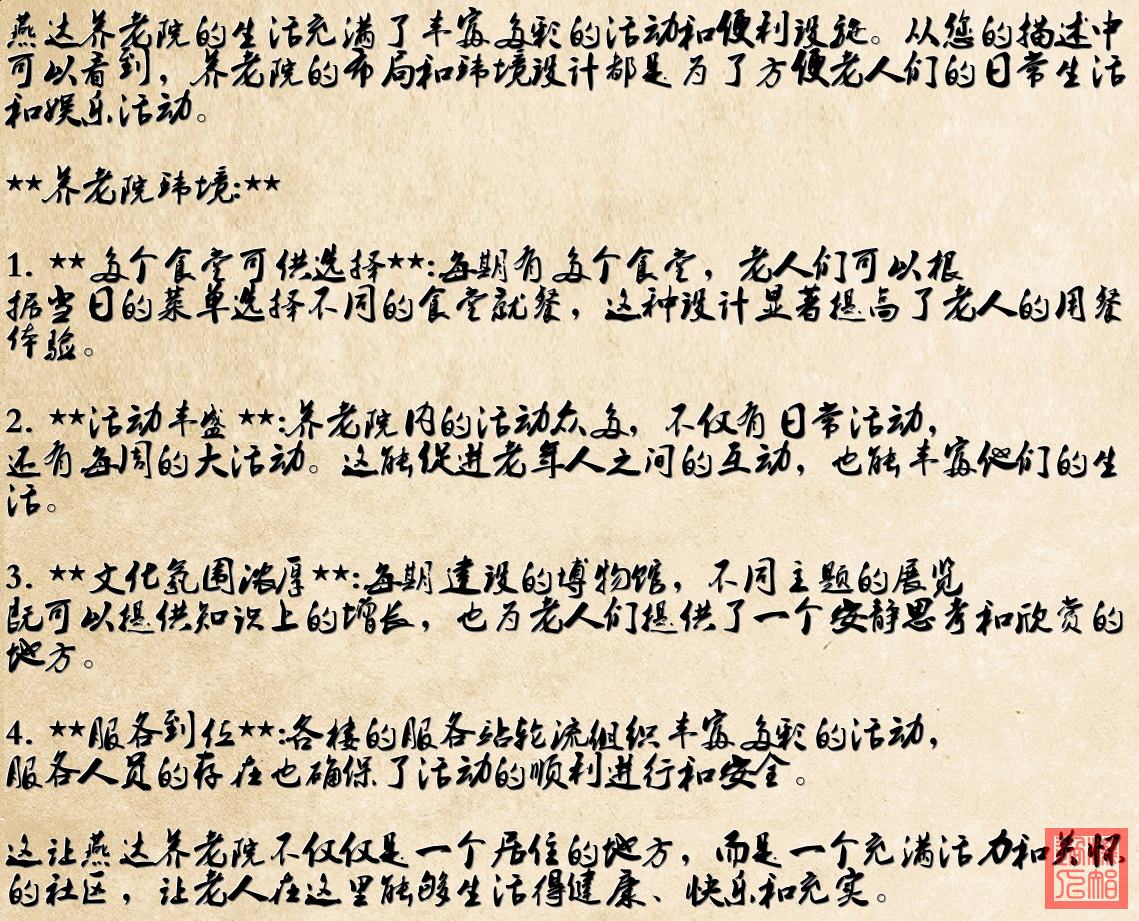 燕达养老院的生活充满了丰富多彩的活动和便利设施。从您的描述中
可以看到，养老院的布局和环境设计都是为了方便老人们的日常生活
和娱乐活动。
**养老院环境:**
1. **多个食堂可供选择**:每期有多个食堂，老人们可以根
据当日的菜单选择不同的食堂就餐，这种设计显著提高了老人的用餐
体验。
2. **活动丰盛 **:养老院内的活动众多，不仅有日常活动，
还有每周的大活动。这能促进老年人之间的互动，也能丰富他们的生
活。
3. **文化氛围浓厚**:每期建设的博物馆，不同主题的展览
既可以提供知识上的增长，也为老人们提供了一个安静思考和欣赏的
地方。
4. **服务到位**:各楼的服务站轮流组织丰富多彩的活动，
服务人员的存在也确保了活动的顺利进行和安全。
这让燕达养老院不仅仅是一个居住的地方，而是一个充满活力和关怀
的社区，让老人在这里能够生活得健康、快乐和充实。